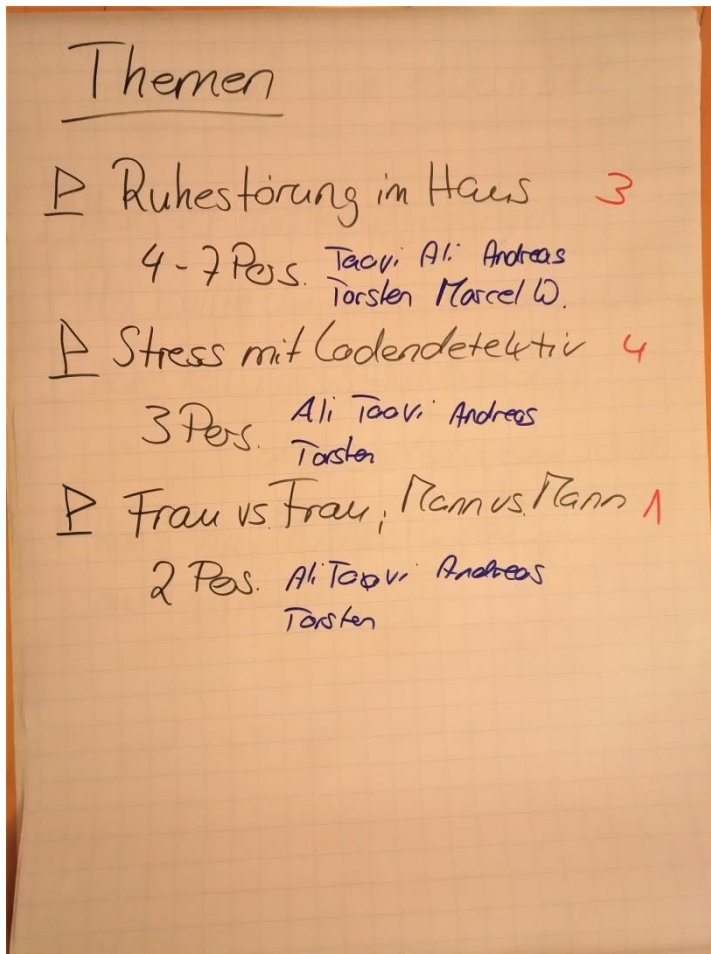 Themen
Ruhestörung im Haus 3
4-7 Pers. Taavi Ali Andreas
Torsten Marcel W.
Stress mit Ladendetektiv 4
3 Pers. Ali Taavi Andreas
Torsten
Frau vs. Frau, Mann vs. Mann 1
2 Pers. Ali Taavi Andreas
Torsten